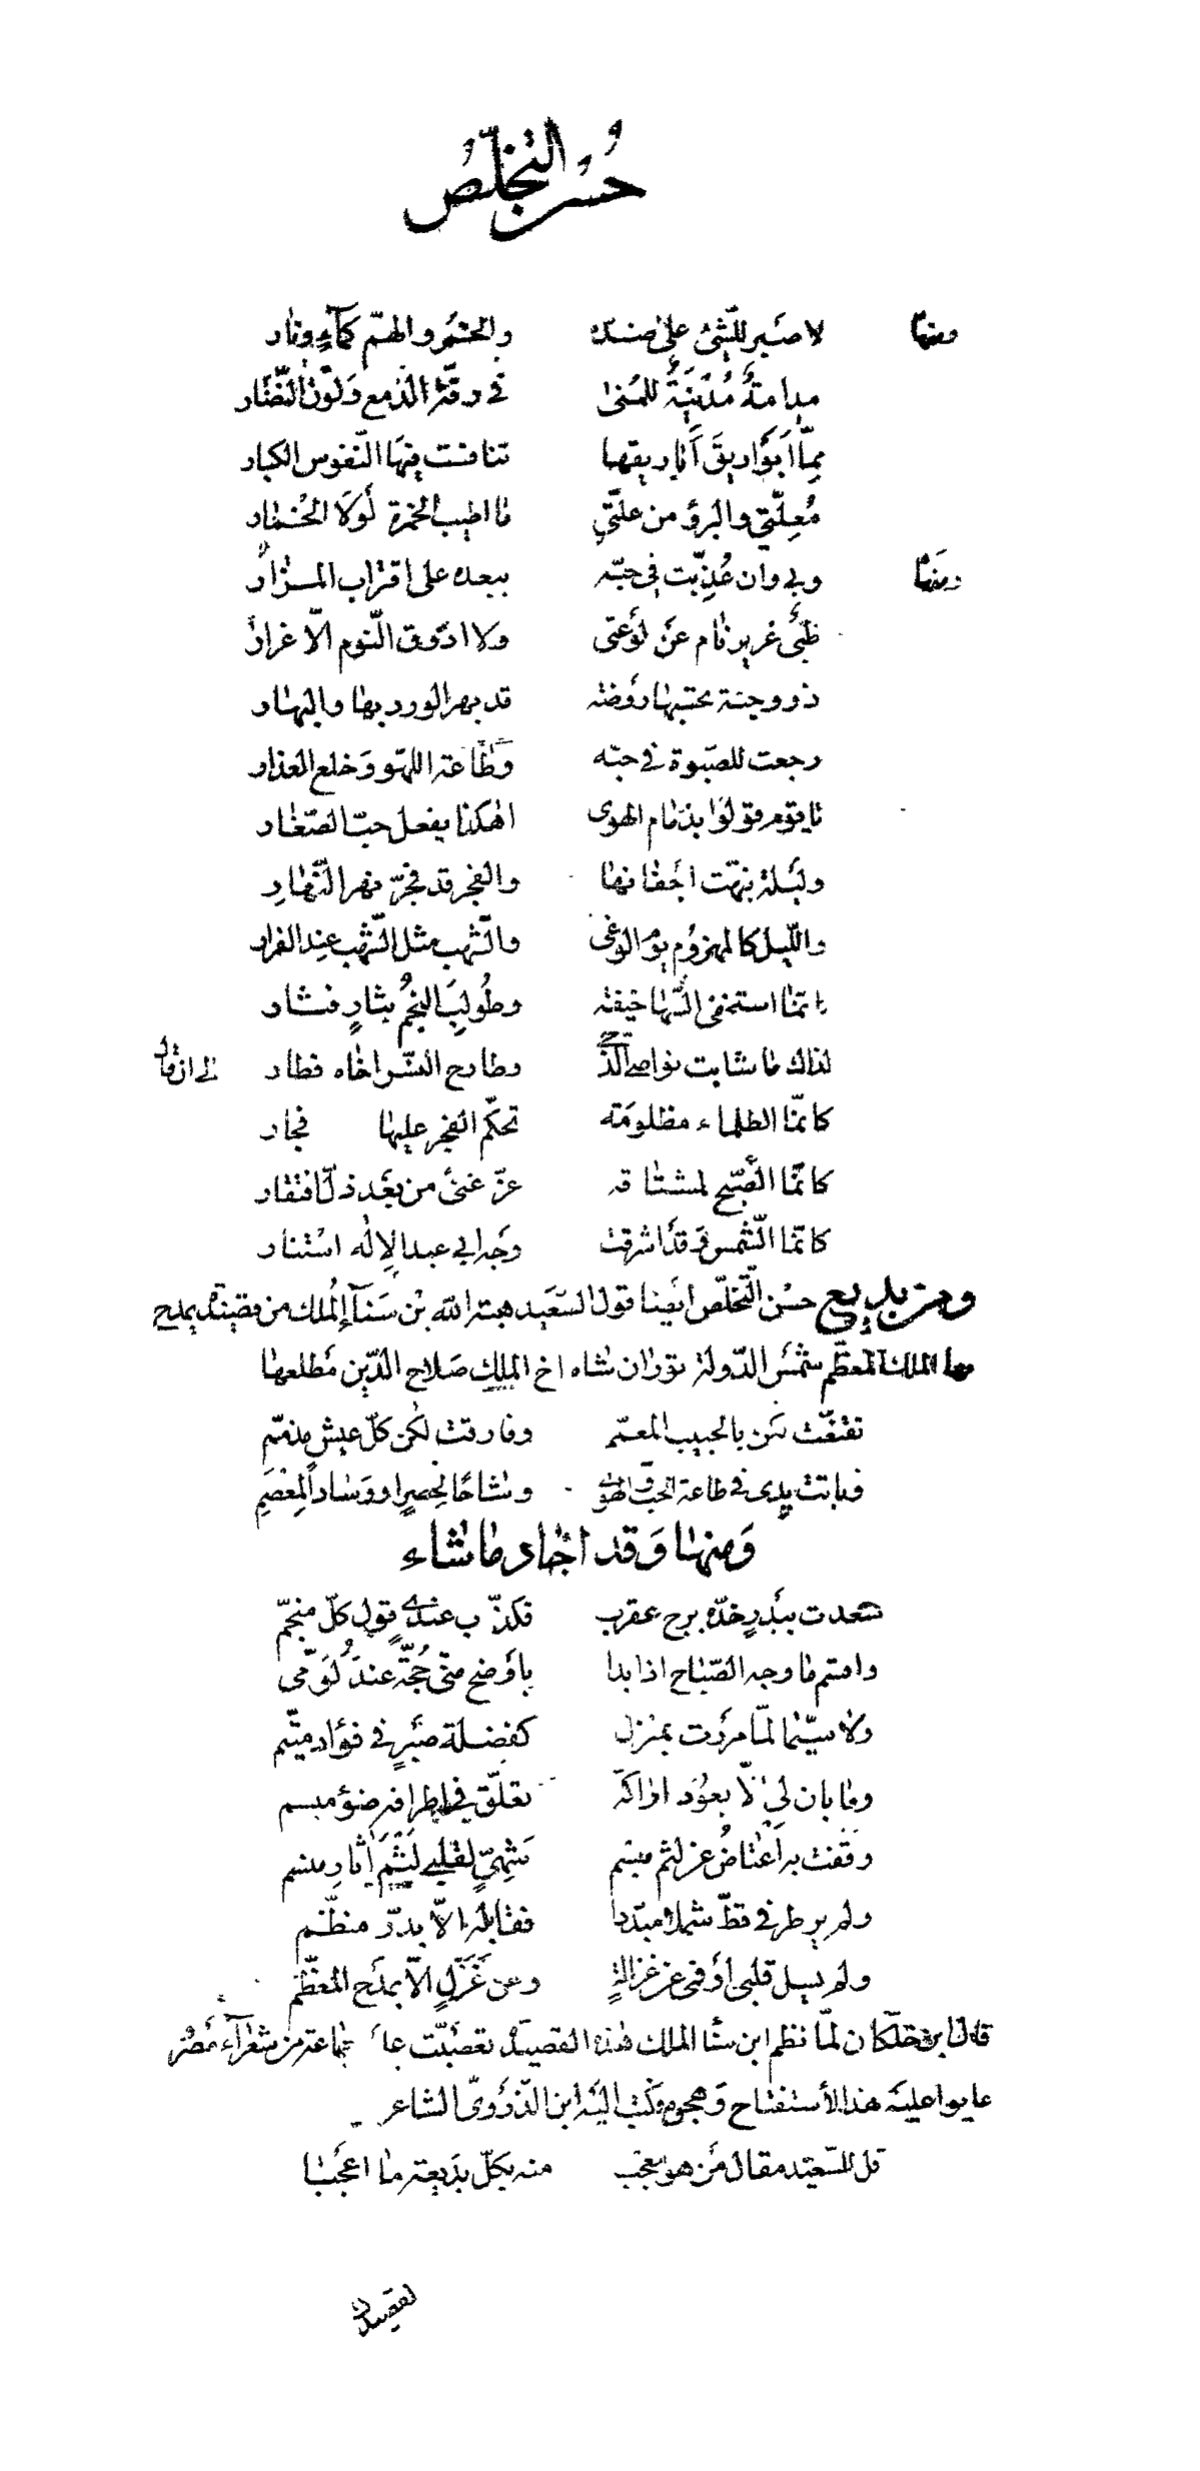 حُسْنُ التخلّصُ
ومنها لا صَبر للشّئ على ضدّه والخمر والهمّ كمآءٍ ونار
مدامةٌ مُدْنِيَةٌ للمُنىٰ في رقّة الدّمع وَلَوْن النُّضار
ممّا اَبَوَاريقَ أباريقها تنافست فيهَا النّفوس الكبار
مُعِلّتي والبرؤ من علّتي ما اطيب الخمرة لَولَا الخُمار
ومنها وبي وان عُذِّبت في حبّه ببعده على اقتراب المزار
ظَبْىٌ غرير نام عَن لوْعتى ولا اذوق النّوم الّا غرار
ذو وجنة بها روْضة قد بهر الورد بها والبهار
رجعت للصّبوة في حبّه وَطَاعة اللهو وَخلع العذار
يا قوم قولوا بذمام الهوى اهكذا يفعل حبّ الصّغار
وليْلة نبّهت اجفانها والفجر قد فجّر نهر النّهار
واللّيل كالمهزوم يوْم الوغى والشّهب مثل الشّهب عند الفرار
كانّما استخفى السّها خيفة وطُولِبَ النجمُ بثارٍ فثار
لذاك ما شابت نواصى الدّجى وطارح النّسر اخاه فطار الى ان قال
كانّما الظلماء مظلومَة تحكّم الفجر عليها فجار
كانّما الصّبح لمشتاقه عزّ غنىً من بعد ذلّ افتقار
كانّما الشّمس وقد اشرقت وجه ابي عبد الإله استنار
ومن بديع حسْن التّخلّص ايضا قول السّعَيد هبة الله بْن سَنآء المُلك من قصيدة يمدح
بها الملك المعظّم شَمْس الدّولة توران شاه اخ الملك صَلاح الدّين مَطلعها
تقنّعت لكن بالحبيب المعمّم وفارقت لكن كلّ عيشٍ مذمّم
فباتت يدى في طاعة الحبّ والهوى وشاحًا لخصرٍ او وسادًا لمِعْصَمِ
وَمنها وَقد اجاد ما شاء
سعدت ببَدرٍ خدّه برج عقرب فكذّب عندى قول كلّ منجّم
واقسم ما وجه الصّباح اذا بدا باَوضح منّى حُجّةً عند لُوّمى
ولا سيّما لمّا مرَرت بمنزل كفضلة صَبْرٍ في فؤاد متيّم
وما بان لي الّا بعوْد اراكة تعلّق في اطرافه ضوْء مبسم
وقفت به اَعْتاضُ عن لثم مبسم شهىّ لقلبى لَثْمَ اٰثارِ منسم
ولم ير طرفي قطّ شملًا مبدّدا فقابله الّا بدرّ منظّم
ولم يسل قلبى اَو فمى عن غزالةٍ وعن غَزَلٍ الّا بمدَح المعظّم
قال ابن خلّكان لمّا نظم ابن سنا الملك هذه القصيدة تعصّبَت جماعة من شعرآء مَصْر
عابوا عليه هذا الأستفتاح وَهجوه فكتب اليه ابن الذّرَوىّ الشاعر
قل للسّعيد مقال مَن هو معجب منه بكلّ بَديعة ما اعجبا
لقصيدة